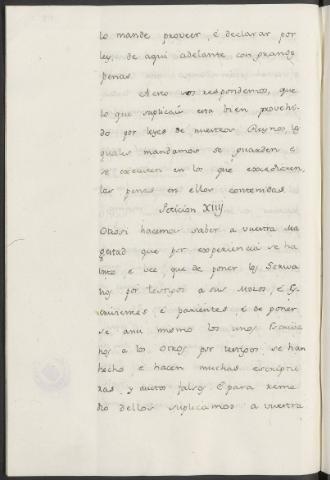 lo mande proveer, é declarar por
ley, de aqui adelante con grandes
penas.
A esto vos respondemos, que
lo que suplicais esta bien provehi-
do por leyes de nuestros Reynos, lo
quales mandamos se guarden e
se executen en los que excedieren,
las penas en ellas contenidas.
Peticion XIIIJ
Otrosi hacemos saber a vuestra Ma
gestad que por experiencia se ha
visto e vee, que de poner los Escriva
nos por testigos a sus Mozos, é
é parientes, é de poner
se ansi mismo los unos Escriva
nos a los otros por testigos se han
hecho e hacen muchas escriptu
ras, y autos falsos. E para reme
dio dello suplicamos a vuestra